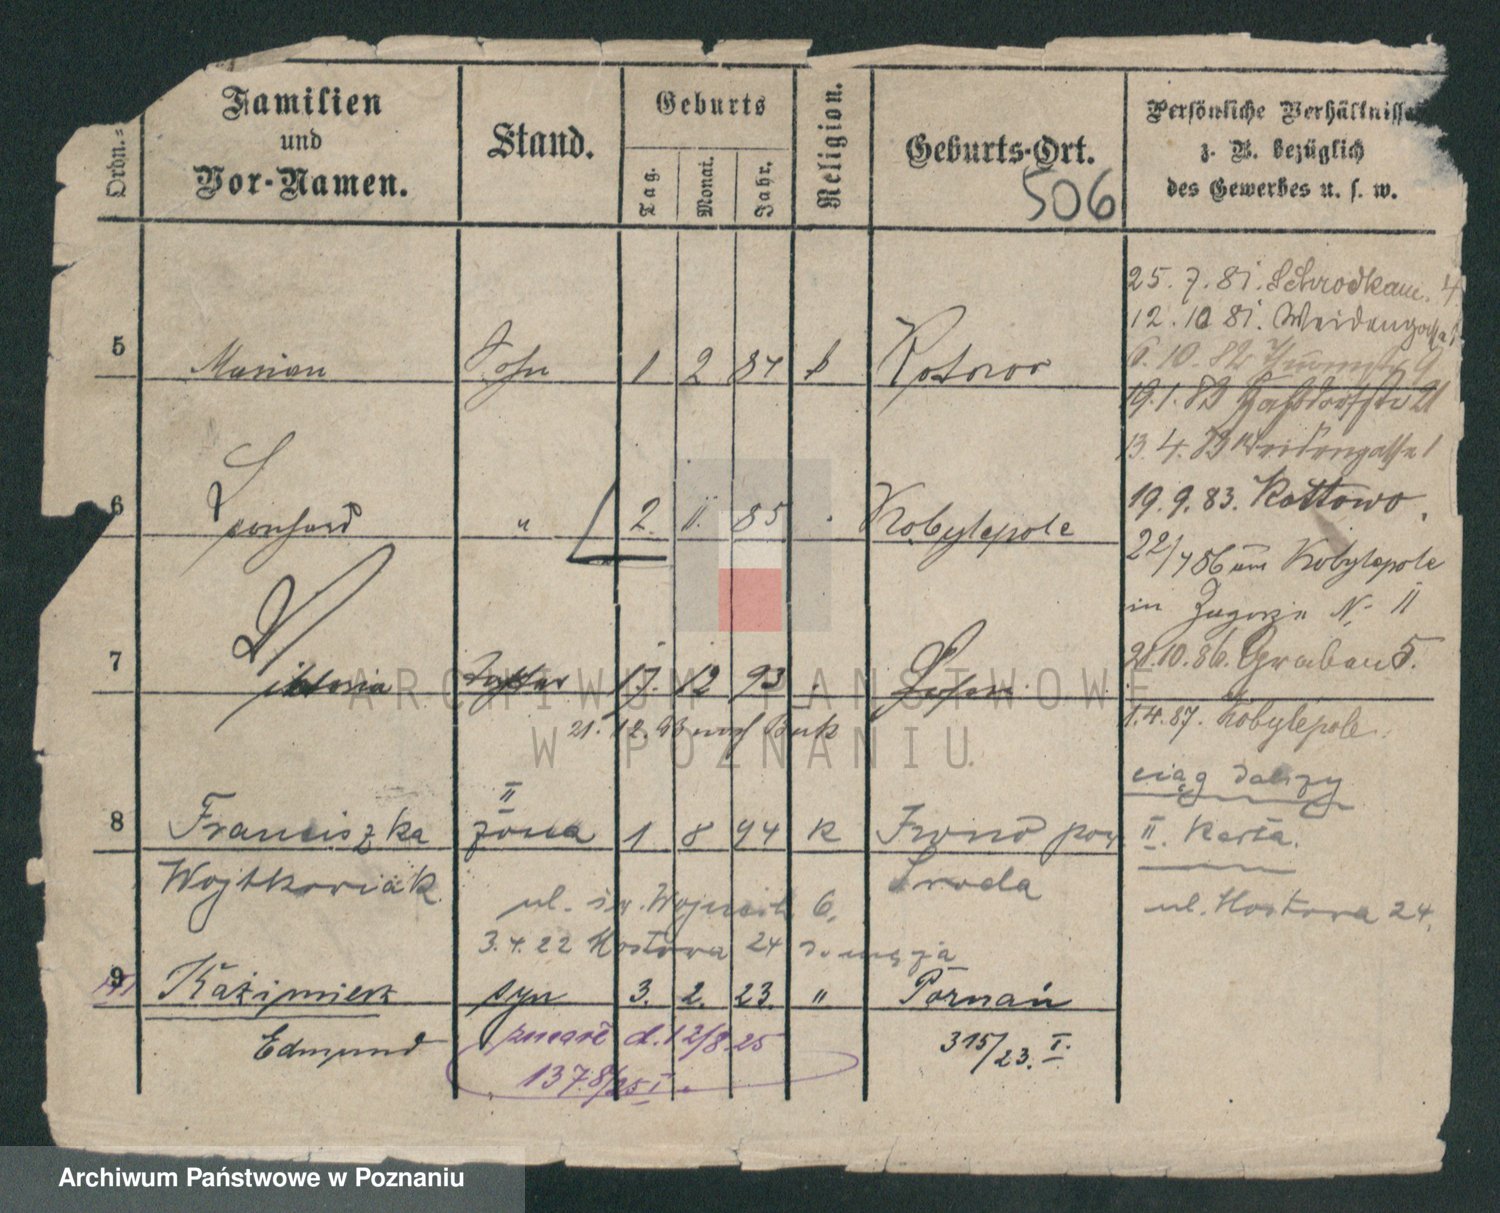 Ordn.=
Familien
und
Vor-Namen.
Stand.
Geburts
Tag.
Monat.
Jahr.
Religion.
Geburts-Ort.
506
Persönliche Verhältnisse
z. B. bezüglich
des Gewerbes u. s. w.
25. 7. 81. Schrodkam. 4
12. 10 81. Weidengasse
5 Marian Sohn 1 2 84 k Kotowo
6. 10. 82
19. 1. 83
13. 4. 83 Weidengasse 1
6 Leonhard " 2. 11. 85 Kobylepole
19. 9. 83. Kottowo.
22/4 86 von Kobylepole
in Zagorze N. 11
7 Viktoria Tochter 17. 12 93
21. 10. 86. Graben 5.
21. 12. 93 nach Buk
1. 4. 87. Kobylepole.
ciąg dalszy
II. Karta.
8 Franciszka II żona 1 8 94 k
Wojtkowiak Środa
ul. św. Wojciech 6.
ul. Mostowa 24.
3. 4. 22 Mostowa 24
9 Kazimierz syn 3. 2. 23. " Poznań
Edmund
zmarł d. 12/8. 25
1378/25 I
315/23. I.
ARCHIWUM PAŃSTWOWE
W POZNANIU
Archiwum Państwowe w Poznaniu